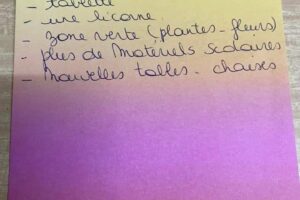 - tablette
- une licorne
- zone verte (plantes - fleurs)
- plus de materiels scolaires
- nouvelles tables - chaises